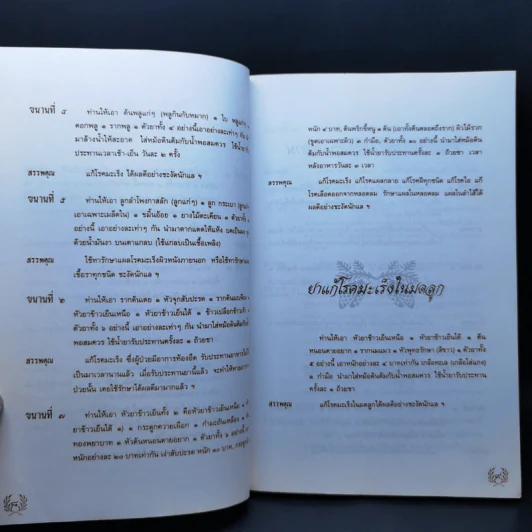 ขนานที่ ๔ ท่านให้เอา ต้นพลูแก่ๆ (พลูกินกับหมาก) ๑ ใบ
ดอกพลู ๑ รากพลู ๑ ตัวยาทั้ง ๔ อย่างนี้เอาอย่างละเท่าๆ กัน
มาล้างน้ำให้สะอาด ใส่หม้อดินต้มกับน้ำพอสมควร ใช้น้ำยารับ
ประทานเวลาเช้า-เย็น วันละ ๒ ครั้ง
สรรพคุณ แก้โรคมะเร็ง ได้ผลดีอย่างชะงัดนักแล ฯ
ขนานที่ ๕ ท่านให้เอา ลูกลำโพงกาสลัก (ลูกแก่ๆ) ๑ ลูก กระเบา
เอาเฉพาะเมล็ดใน) ๑ ขมิ้นอ้อย ๑ ยางไม้ตะเคียน ๑ ตัวยาทั้ง
อย่างนี้ เอาอย่างละเท่าๆ กัน นำมาตากแดดให้แห้ง บดเป็นผง
ด้วยน้ำมันงา บนเตาแกลบ (ใช้แกลบเป็นเชื้อเพลิง)
สรรพคุณ ใช้ทารักษาแผลโรคมะเร็งผิวหนังภายนอก หรือใช้ทารักษา
เชื้อราทุกชนิด ชะงัดนักแล ฯ
ขนานที่ ๖ ท่านให้เอา รากต้นเตย ๑ หัวจุกสับปะรด ๑
หัวยาข้าวเย็นเหนือ ๑ หัวยาข้าวเย็นใต้ ๑ ข้าวเปลือกข้าวเจ้า
ตัวยาทั้ง ๖ อย่างนี้ เอาอย่างละเท่าๆ กัน นำมาใส่หม้อดินต้ม
กับน้ำพอสมควร ใช้น้ำยารับประทานครั้งละ ๑ ถ้วยชา
สรรพคุณ แก้โรคมะเร็ง ซึ่งผู้ป่วยมีอาการท้องอืด รับประทานอาหาร
เป็นมาเวลานานแล้ว เมื่อรับประทานยานี้แล้ว จะทำให้
ป่วยนั้น เคยใช้รักษาได้ผลดีมามากแล้ว ฯ
ขนานที่ ๗ ท่านให้เอา หัวยาข้าวเย็นทั้ง ๒ คือหัวยาข้าวเย็นเหนือ ๑
ยาข้าวเย็นใต้ ๑) ๑ กระดูกควายเผือก ๑ กำมะถันเหลือง ๑
ทองพยาบาท ๑ หัวต้นหนอนตายอยาก ๑ ตัวยาทั้ง ๖ อย่างนี้
หนักอย่างละ ๒๐ บาทเท่ากัน เง่าสับปะรด หนัก ๑๐ บาท,
หนัก ๔ บาท, ต้นพริกขี้หนู ๑ ต้น (เอาทั้งต้นตลอดถึงราก) ผิวไม้รวก
(ขูดเอาเฉพาะผิว) ๓ กำมือ, ตัวยาทั้ง ๑๐ อย่างนี้ นำมาใส่หม้อดิน
ต้มกับน้ำพอสมควร ใช้น้ำยารับประทานครั้งละ ๑ ถ้วยชา เวลา
หลังอาหารวันละ ๓ เวลา
สรรพคุณ แก้โรคมะเร็ง แก้โรคแผลกลาย แก้โรคฝีทุกชนิด แก้โรคไอ แก้
โรคเลือดออกจากหลอดลม รักษาแผลในหลอดลม แผลในลำไส้ได้
ผลดีอย่างชะงัดนักแล ฯ
ยาแก้โรคมะเร็งในมดลูก
ท่านให้เอา หัวยาข้าวเย็นเหนือ ๑ หัวยาข้าวเย็นใต้ ๑ ต้น
หนอนตายอยาก ๑ รากนมแมว ๑ หัวพุทธรักษา (สีขาว) ๑ ตัวยาทั้ง ๕
อย่างนี้ เอาหนักอย่างละ ๕ บาท เท่าๆ กัน เกลือทะเล (เกลือใส่แกง)
๑ กำมือ นำมาใส่หม้อดินต้มกับน้ำพอสมควร ใช้น้ำยารับประทาน
ครั้งละ ๑ ถ้วยชา
สรรพคุณ แก้โรคมะเร็งในมดลูกได้ผลดีอย่างชะงัดนักแล ฯ